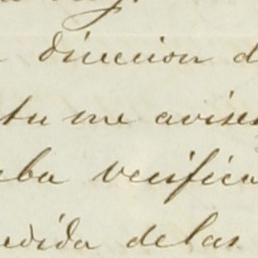 direccion d
tu me avises
eba verifica
edida delas